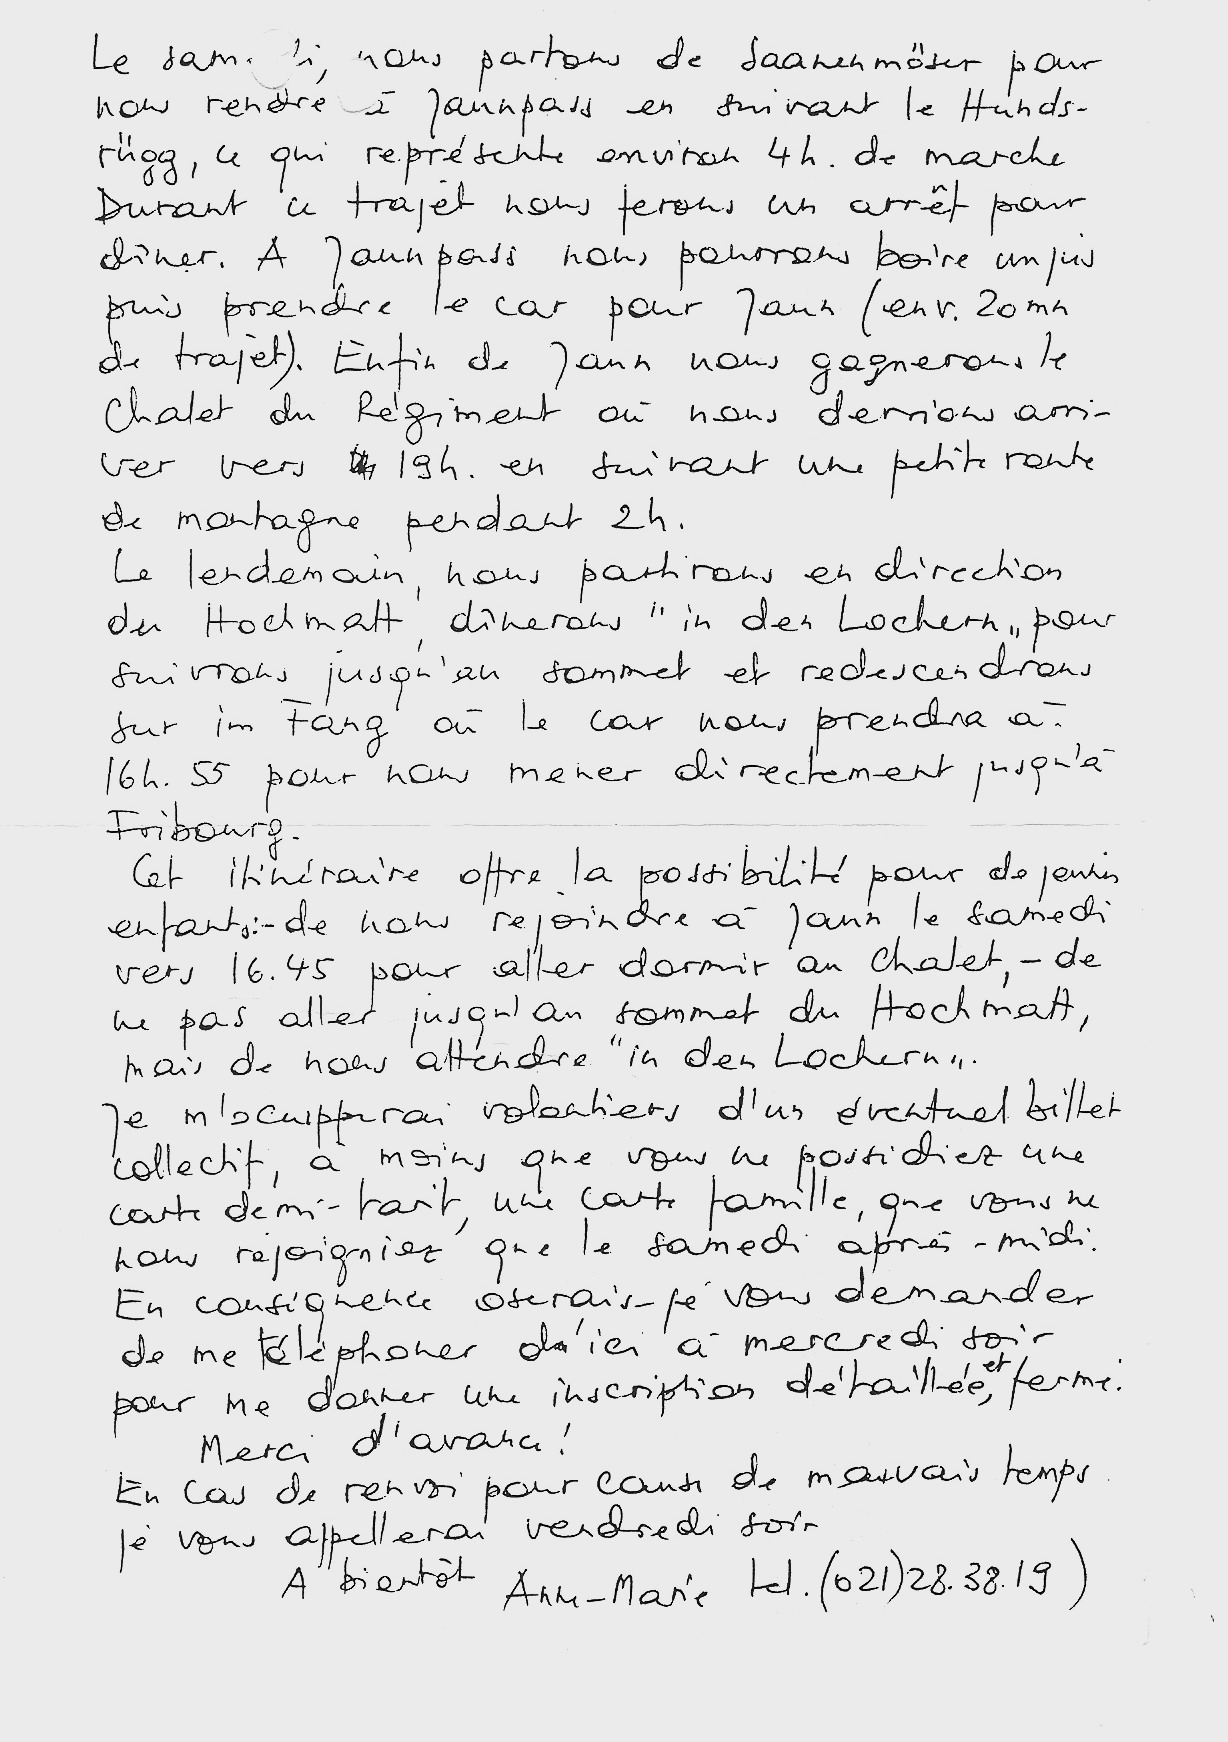 Le samedi, nous partons de Saanenmöser pour
nous rendre à Jaunpass en suivant le Hunds-
rügg, ce qui représente environ 4h. de marche
Durant ce trajet nous ferons un arrêt pour
dîner. A Jaunpass nous pourrons boire un jus
puis prendre le car pour Jaun (env. 20mn
de trajet). Enfin de Jaun nous gagnerons le
Chalet du Régiment où nous devrions arri-
ver vers 19h. en suivant une petite route
de montagne pendant 2h.
Le lendemain, nous partirons en direction
du Hochmatt, dînerons "in den Lochern„ pour
suivrons jusqu'au sommet et redescendrons
sur im Fang où le car nous prendra à
16h.55 pour nous mener directement jusqu'à
Fribourg.
Cet itinéraire offre la possibilité pour de jeunes
enfants:-de nous rejoindre à Jaun le samedi
vers 16.45 pour aller dormir au Chalet,-de
ne pas aller jusqu'au sommet du Hochmatt,
mais de nous attendre "in den Lochern„.
Je m'occupperai volontiers d'un éventuel billet
collectif, à moins que vous ne possédiez une
carte demi-tarif, une carte famille, que vous ne
nous rejoigniez que le samedi après-midi.
En conséquence oserais-je vous demander
de me téléphoner d'ici à mercredi soir
pour me donner une inscription détaillée, et ferme.
Merci d'avance!
En cas de renvoi pour cause de mauvais temps
je vous appellerai vendredi soir
A bientôt Anne-Marie tel. (021)28.38.19)